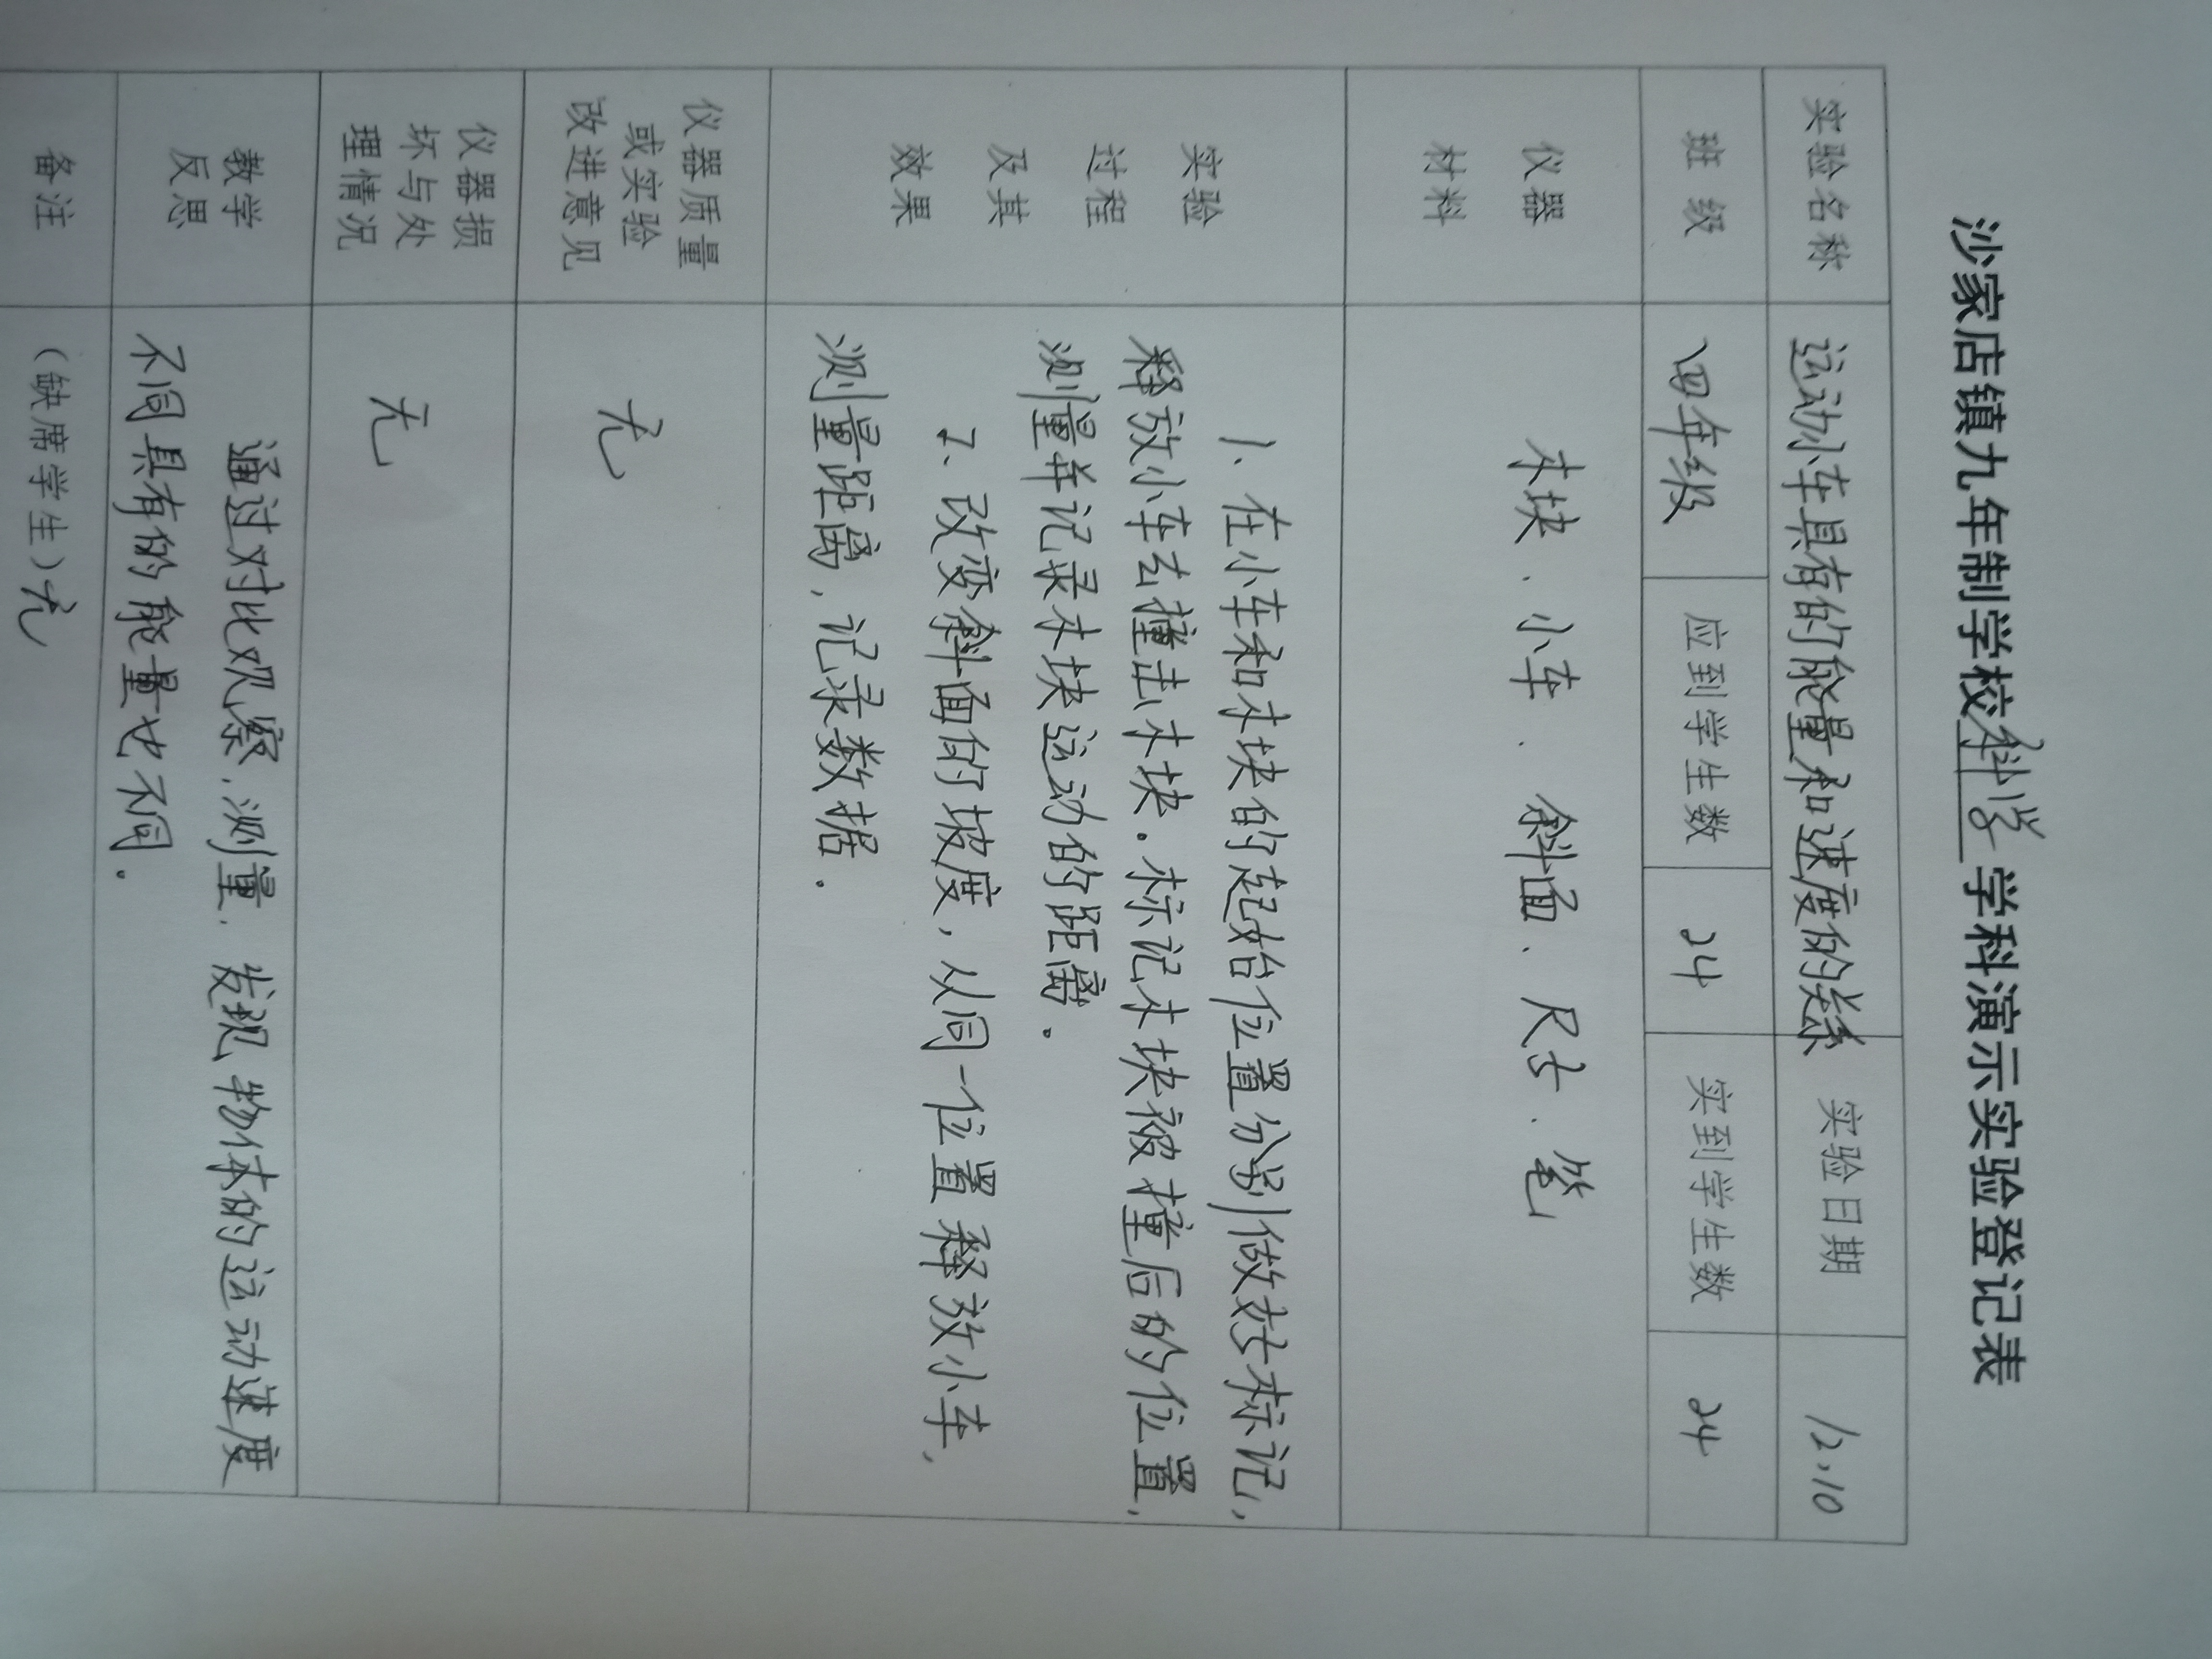 沙家店镇九年制学校科学学科演示实验登记表
实验名称 运动小车具有的能量和速度的关系 实验日期 12.10
班 级 四年级 应到学生数 24 实到学生数 24
仪器
材料
木块、小车、斜面、尺子、笔
实验
过程
及其
效果
1、在小车和木块的起始位置分别做好标记,
释放小车去撞击木块.标记木块被撞后的位置,
测量并记录木块运动的距离.
2、改变斜面的坡度,从同一位置释放小车,
测量距离,记录数据.
仪器质量
或实验
改进意见
无
仪器损
坏与处
理情况
无
教学
反思
通过对比观察,测量,发现物体的运动速度
不同具有的能量也不同.
备注 (缺席学生)无